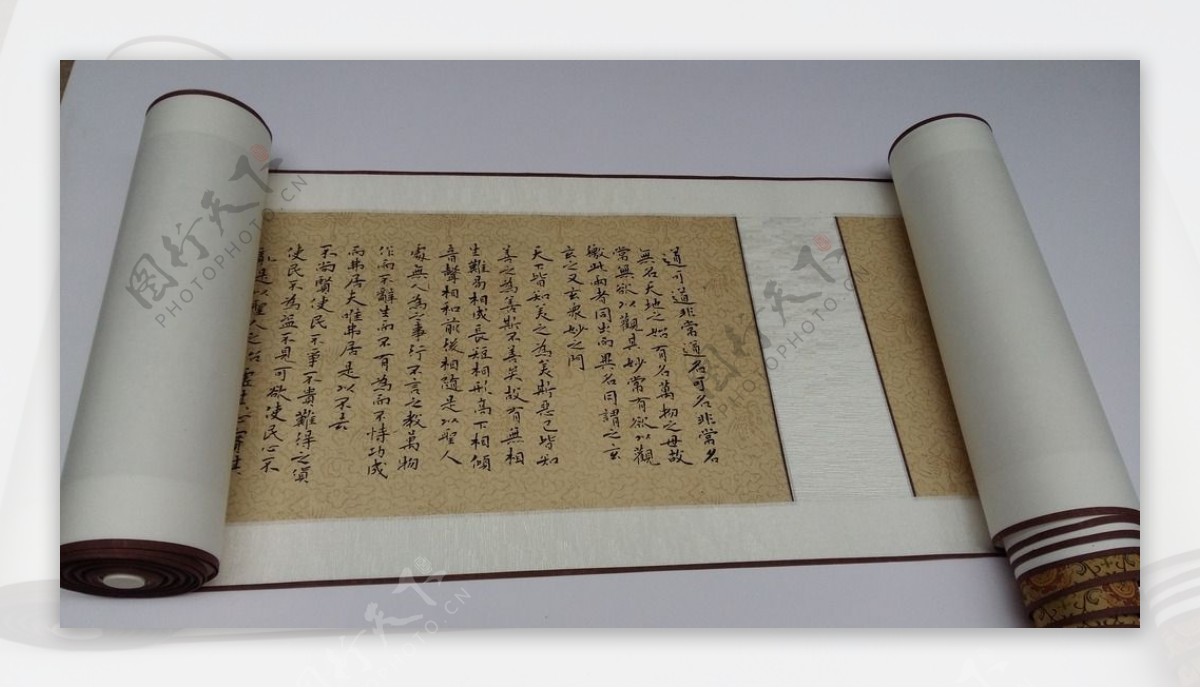 道可道非常道名可名非常名
無名天地之始有名萬物之母故
常無欲以觀其妙常有欲以觀
徼此兩者同出而異名同謂之玄
玄之又玄衆妙之門
天下皆知美之為美斯惡已皆知
善之為善斯不善矣故有無相
生難易相成長短相形高下相傾
音聲相和前後相隨是以聖人
處無為之事行不言之教萬物
作而不辭生而不有為而不恃功成
而弗居夫唯弗居是以不去
不尚賢使民不爭不貴難得之貨
使民不為盜不見可欲使民心不
亂是以聖人之治虛其心實其
图行天下
PHOTOPHOTO.CN
图行天下
PHOTOPHOTO.CN
图行天下
PHOTOPHOTO.CN